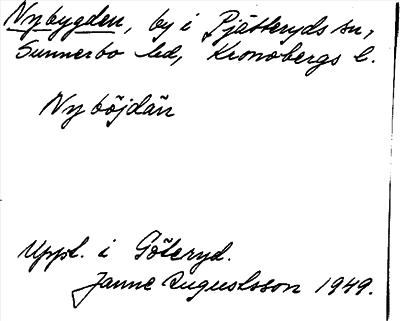 Nybygden, by i Pjätteryds sn,
Sunnerbo hd, Kronobergs l.
Ny böjdän
Uppt. i Göteryd.
Janne Augustsson 1949.